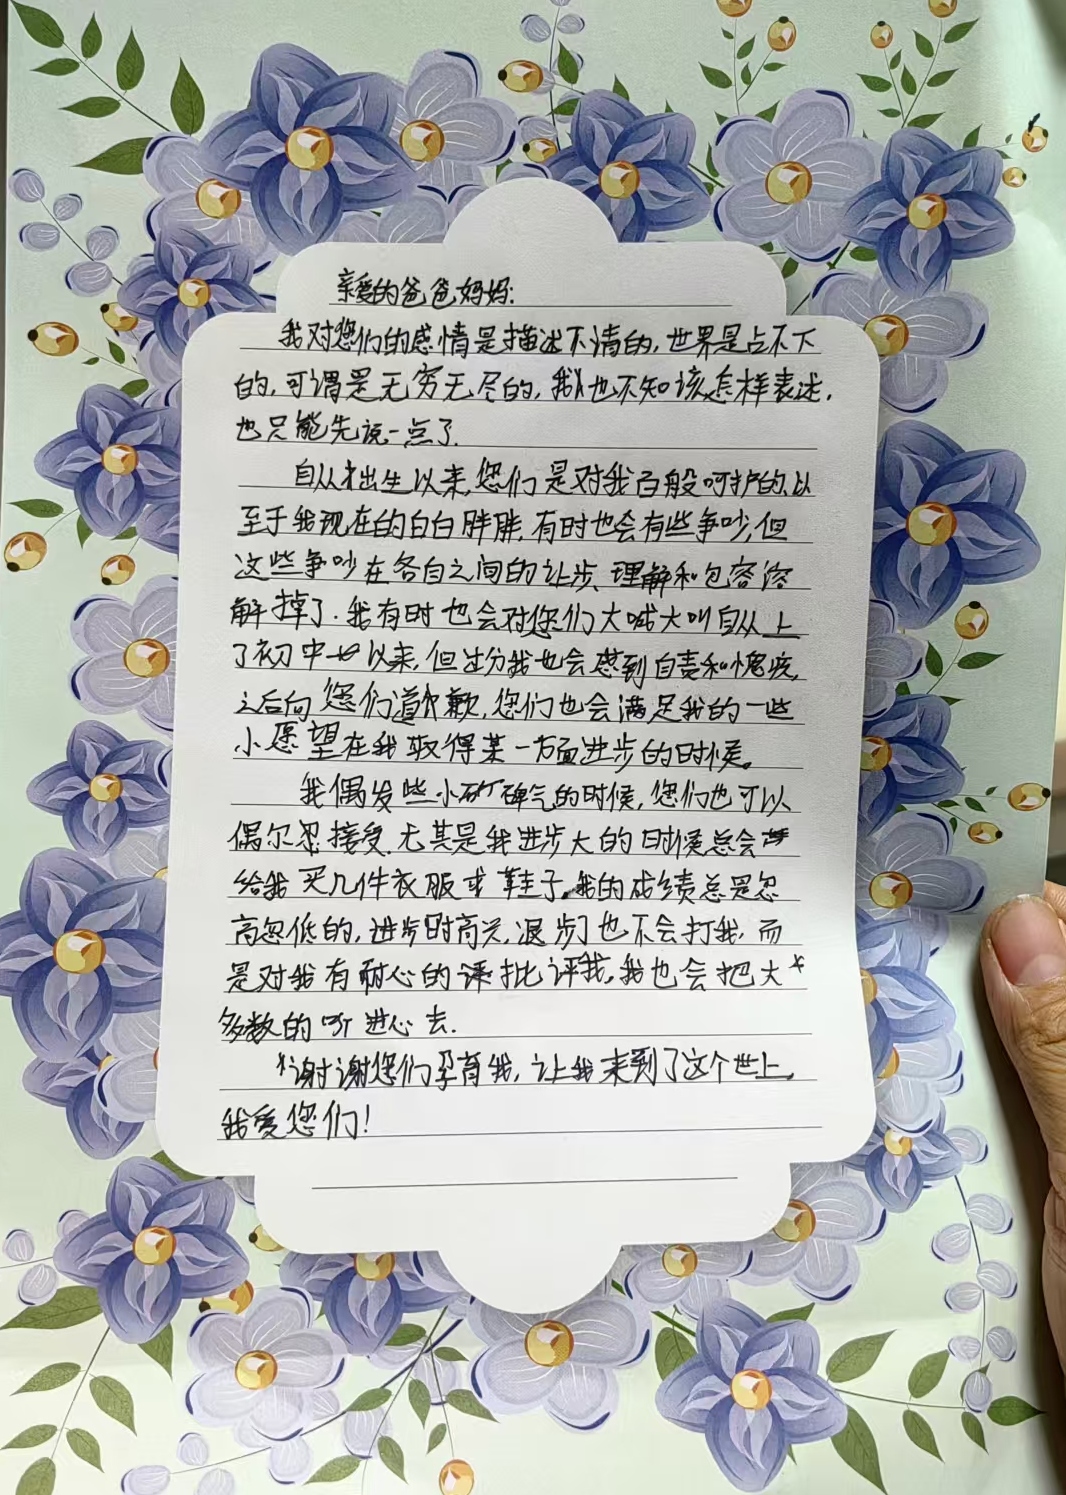 亲爱的爸爸妈妈:
我对您们的感情是描述不清的,世界是占不下
的,可谓是无穷无尽的,我也不知该怎样表述,
也只能先说一点了.
自从出生以来,您们是对我百般呵护的,以
至于我现在的白白胖胖,有时也会有些争吵,但
这些争吵在各自之间的让步、理解和包容溶
解掉了.我有时也会对您们大喊大叫自从上
了初中以来,但过分我也会感到自责和愧疚,
之后向您们道歉,您们也会满足我的一些
小愿望在我取得某一方面进步的时候。
我偶发些小脾气的时候,您们也可以
偶尔忍接受,尤其是我进步大的时候总会
给我买几件衣服或鞋子。我的成绩总是忽
高忽低的,进步时高兴,退步也不会打我,而
是对我有耐心的批评我,我也会把大
多数的听进心去.
谢谢您们孕育我,让我来到了这个世上,
我爱您们!